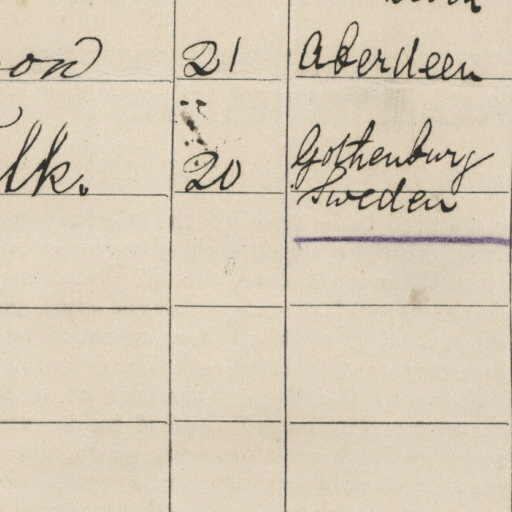 21 Aberdeen
20 Gothenburg
Sweden